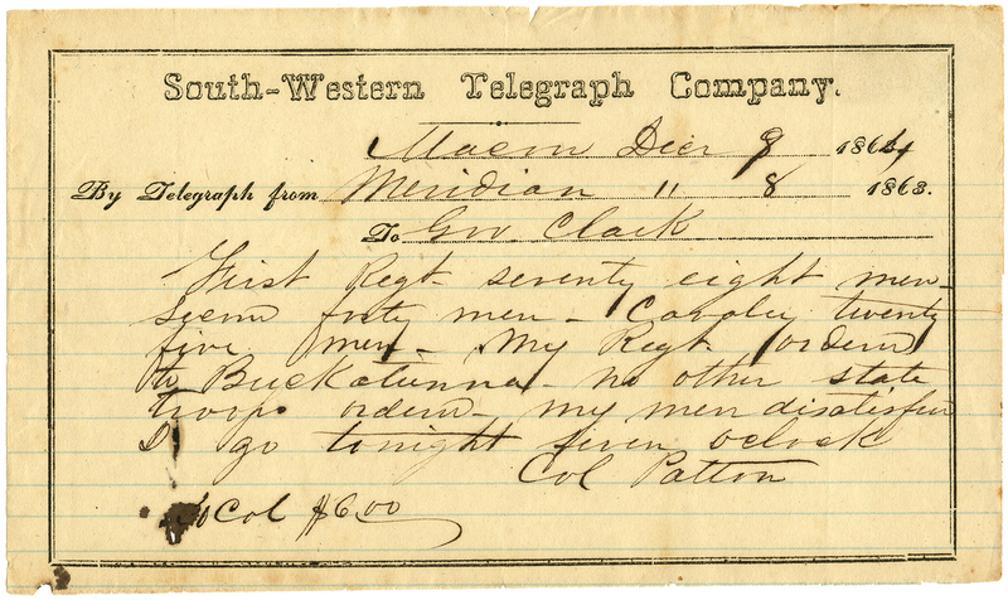 South-Western Telegraph Company.
Macon Decr 9 1864
By Telegraph from Meridian " 8 1863.
To Gov Clark
First Regt- seventy eight men-
forty men- Cavalry twenty
five men- My Regt. ordered
to Buckatunna- no other state
troops ordered- my men disatisfied
I go tonight seven oclock
Col Patton
Col $6.00